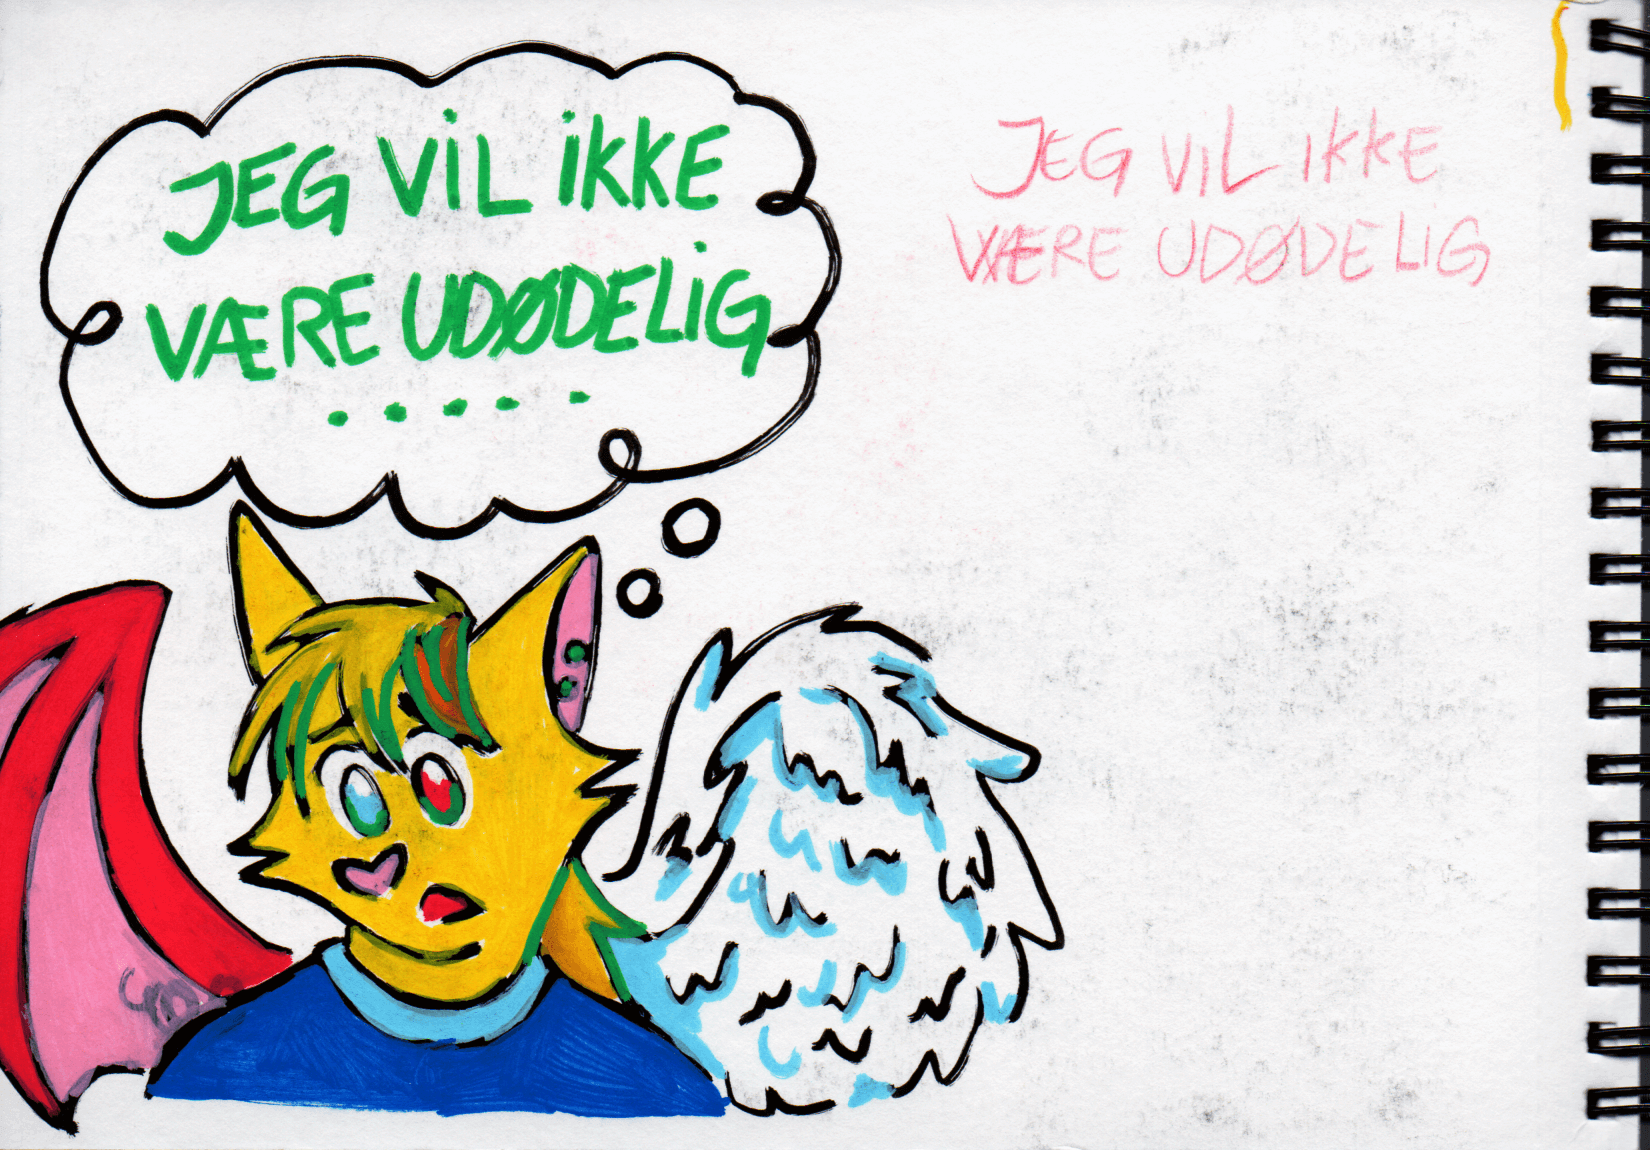 JEG ViL iKKE
VÆRE UDØDELiG
.....
JEG ViL iKKE
VÆRE UDØDELiG